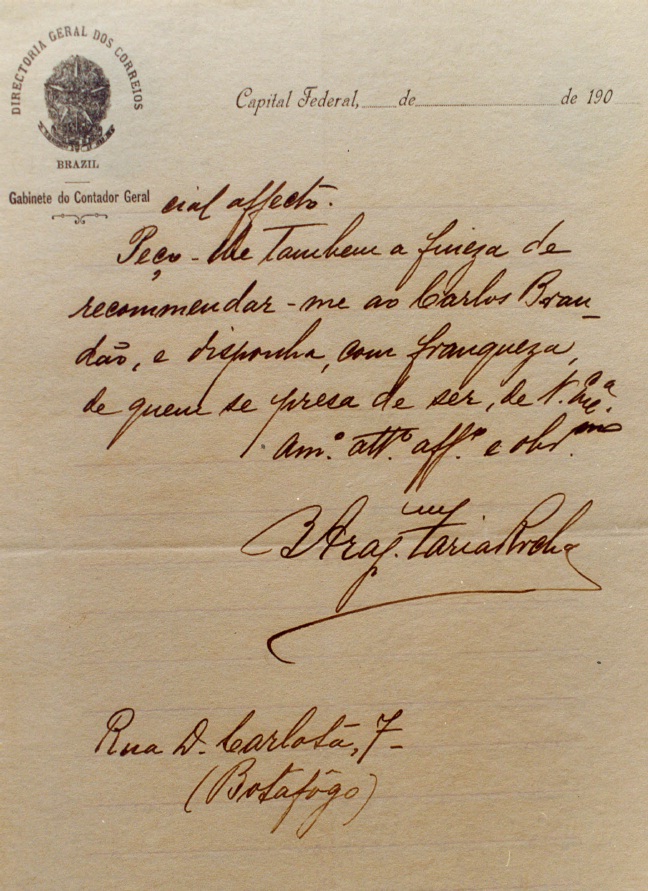 DIRECTORIA GERAL DOS CORREIOS
BRAZIL
Gabinete do Contador Geral
Capital Federal, ___ de ______ de 190
cial affecto.
Peço-lhe tambem a fineza de
recommendar-me ao Carlos Bran-
dão, e disponha, com franqueza,
de quem se presa de ser, de V. Exª.
Amº. attº. affº. e obrmo
B Arag. Faria Rocha
Rua D. Carlota, 7-
(Botafôgo)